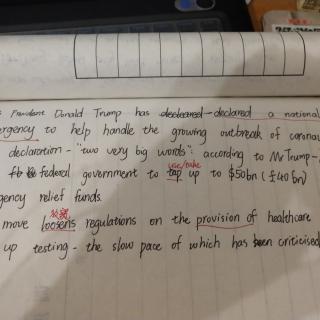 President Donald Trump has declared declared a national
ergency to help handle the growing outbreak of corona
declaration - "two very big words": according to Mr Trump -
federal government to tap up to $50bn (£40bn)
use/take
gency relief funds.
move loosens regulations on the provision of healthcare
up testing - the slow pace of which has been criticised